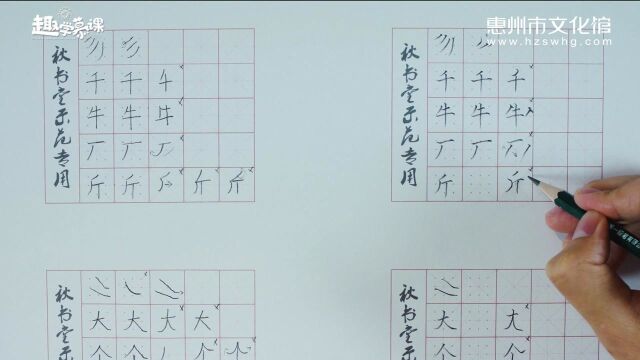 趣学慕课
惠州市文化馆
www.hzswhg.com
秋书堂示范专用
千 千
牛 牛
厂 厂
斤 斤 斤 斤
秋书堂示范专用
千 千 千
牛 牛 牛
厂 厂
斤 斤
秋书堂示
大 大 大 大
个 个 个
秋书堂示
大 大
个 个